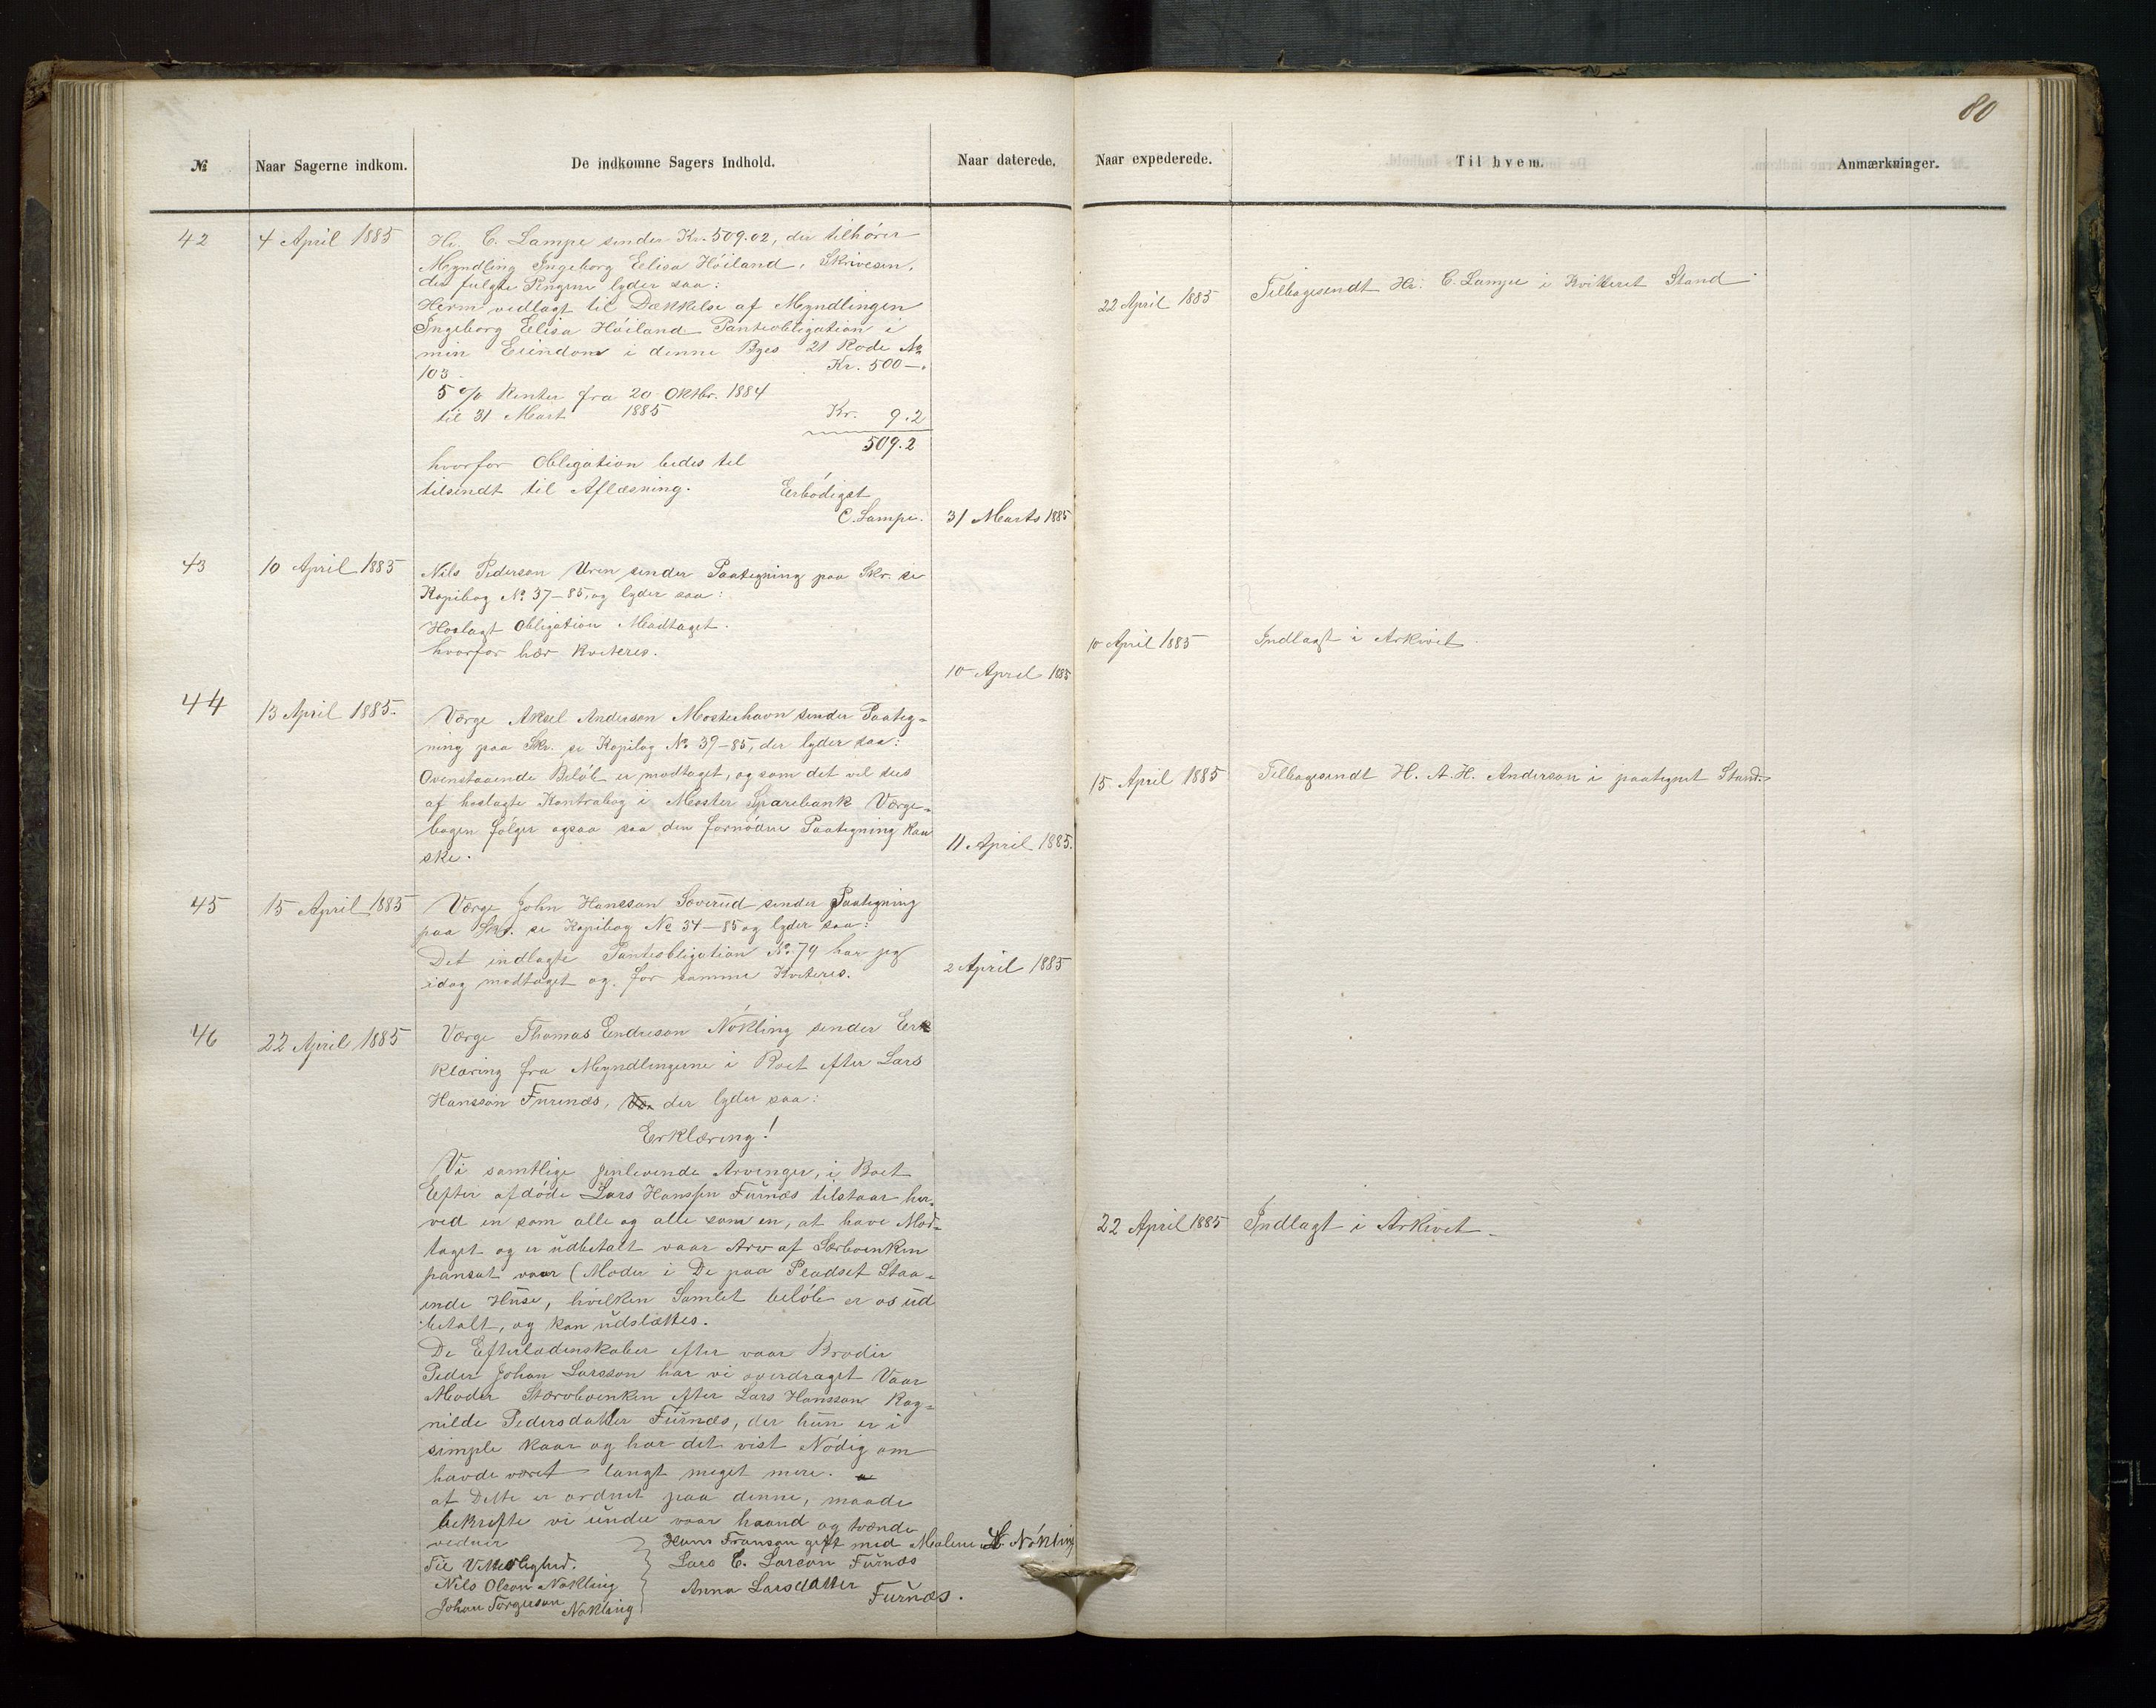 80
№ Naar Sagerne indkom. De indkomne Sagers Indhold. Naar daterede. Naar expederede. Til hvem. Anmærkninger.
42 4 April 1885 Hr. C. Lampe sender Kr. 509.02, der tilhører
Myndling Ingeborg Elisa Höiland, Skrivesen,
der fulgte Pengene lyder saa:
Herm vedlagt til Dækkelse af Myndlingen
Ingeborg Elisa Höiland Panteobligation i
min Eiendom i denne Byes 21 Rode №
103. Kr. 500—.
5 % Renter fra 20 Oktbr. 1884
til 31 Mart 1885 Kr. 9.2
509.2
hvorfor Obligation bedes til
tilsendt til Aflæsning. Erbödigst
C. Lampe. 31 Marts 1885
22 April 1885 Tilbagesendt Hr. C. Lampe i Kvitteret Stand
43 10 April 1885 Nils Pederson Uren sender Paategning paa Skr. se
Kopibog № 37–85, og lyder saa:
Hoslagt Obligation Modtaget.
hvorfor hær Kviteres.
10 April 1885
10 April 1885 Indlagt i Arkivet.
44 13 April 1885. Værge Aksel Anderson Mosterhavn sender Paateg=
ning paa Skr. se Kopibog № 39–85, der lyder saa:
Ovenstaaende Belöb er modtaget, og som det vil sees
af hoslagte Kontrabog i Moster Sparebank Værge=
bogen følger ogsaa saa den fornödne Paategning kan
ske.
11 April 1885.
15 April 1885 Tilbagesendt H. A. H. Anderson i paategnet Stand.
45 15 April 1885 Værge John Hansson Soverud sender Paategning
paa Skr. se Kopibog № 34–85 og lyder saa:
Det indlagte Panteobligation №. 79 har jeg
idag modtaget og for samme Kviteres.
2 April 1885
46 22 April 1885 Værge Thomas Endreson Nökling sender Er
klæring fra Myndlingerne i Boet efter Lars
Hansson Furenæs, der lyder saa:
Erklæring!
Vi samtlige jenlevende Arvinger, i Boet
Efter afdöde Lars Hanssen Furnæs tilstaar her=
ved en som alle og alle som en, at have Mod=
taget og er udbetalt vaar Arv af Særboenken
pansat vaar (Moder i De paa Pladset Staa=
ende Huse, hvilken Samlet belöb er os ud
betalt, og kan udslættes.
De Efterladenskaber efter vaar Broder
Peder Johan Larsson har vi overdraget Vaar
Moder Stervboenken efter Lars Hansson Rag=
nilde Pedersdatter Furnæs, der hun er i
simple kaar og har det vist Nödig om
havde været langt meget mere.
at Dette er ordnet paa denne, maade
bekrefte vi under vaar haand og tvende
vedner
Hans Franson gift med Malene Nökling
Til Vitterlighed. Lars E. Larson Furnæs
Nils Olson Nökling Anna Larsdatter Furnæs.
Johan Torgerson Nökling
22 April 1885 Indlagt i Arkivet.